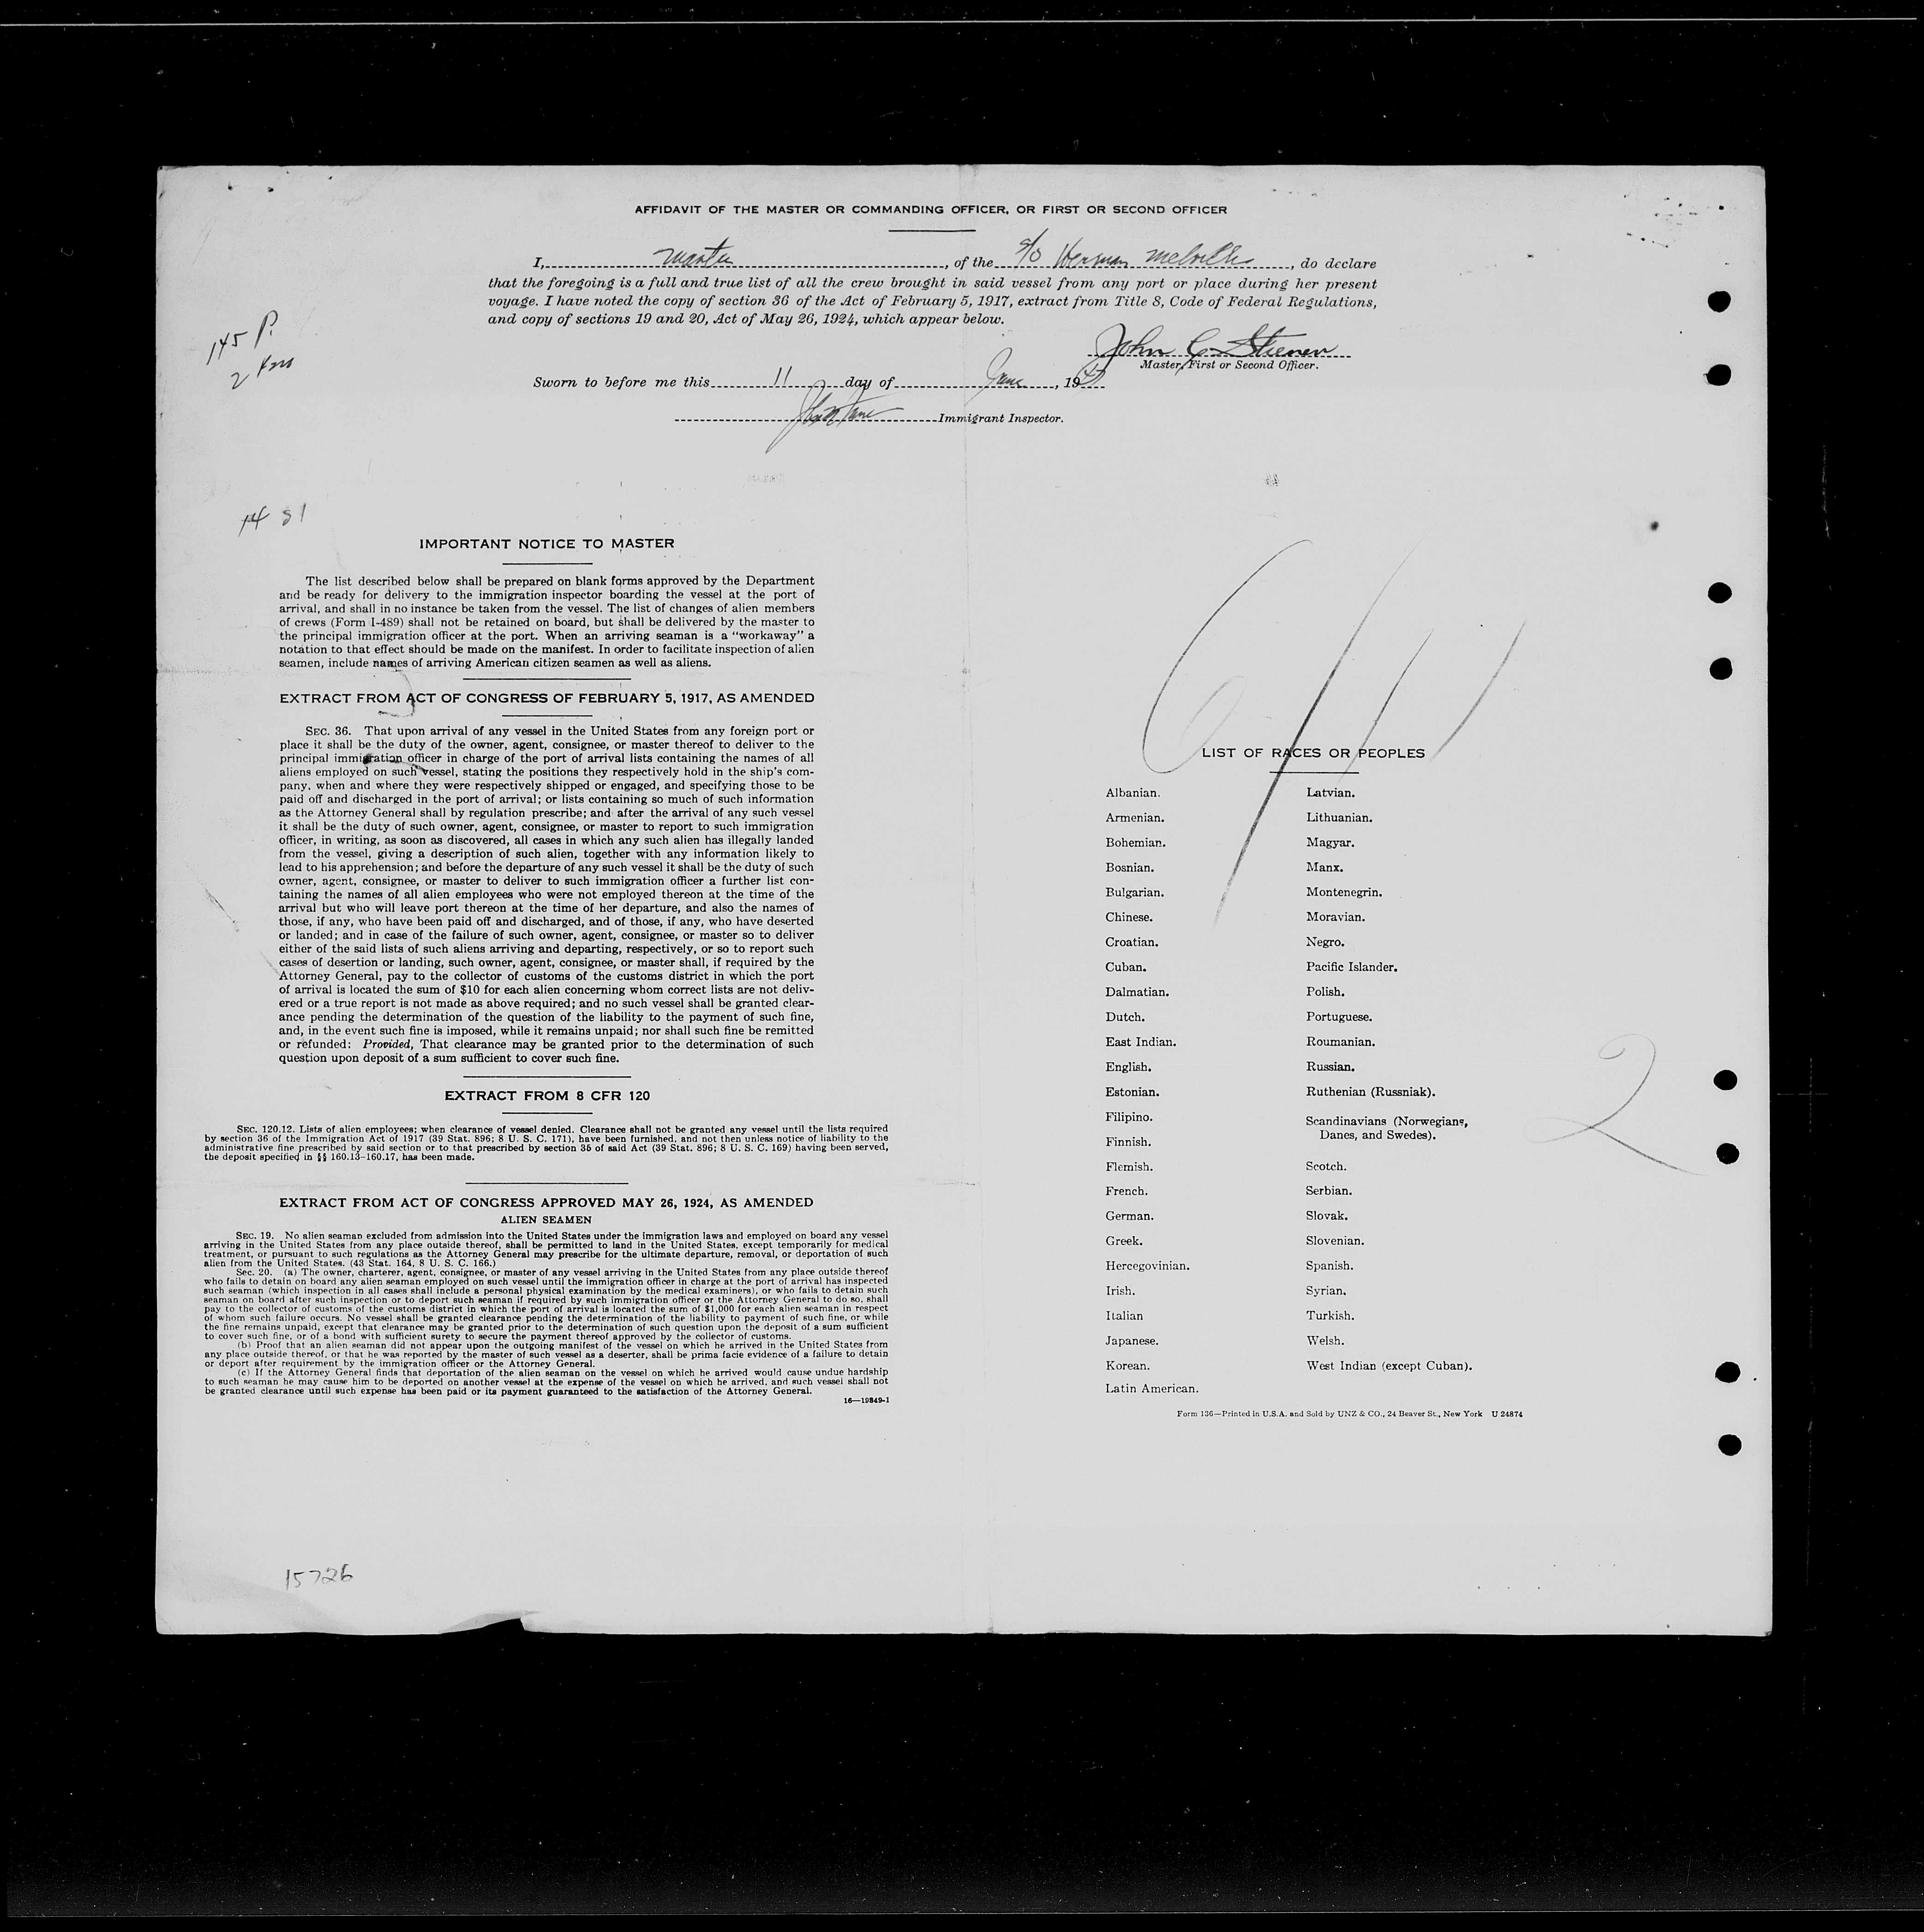 AFFIDAVIT OF THE MASTER OR COMMANDING OFFICER, OR FIRST OR SECOND OFFICER
I, Master, of the S/S Herman Melville, do declare
that the foregoing is a full and true list of all the crew brought in said vessel from any port or place during her present
voyage. I have noted the copy of section 36 of the Act of February 5, 1917, extract from Title 8, Code of Federal Regulations,
and copy of sections 19 and 20, Act of May 26, 1924, which appear below.
145 P.
2
John C.
Master, First or Second Officer.
Sworn to before me this 11 day of June, 19
Immigrant Inspector.
14 81
IMPORTANT NOTICE TO MASTER
The list described below shall be prepared on blank forms approved by the Department
and be ready for delivery to the immigration inspector boarding the vessel at the port of
arrival, and shall in no instance be taken from the vessel. The list of changes of alien members
of crews (Form I-489) shall not be retained on board, but shall be delivered by the master to
the principal immigration officer at the port. When an arriving seaman is a "workaway" a
notation to that effect should be made on the manifest. In order to facilitate inspection of alien
seamen, include names of arriving American citizen seamen as well as aliens.
EXTRACT FROM ACT OF CONGRESS OF FEBRUARY 5, 1917, AS AMENDED
SEC. 36. That upon arrival of any vessel in the United States from any foreign port or
place it shall be the duty of the owner, agent, consignee, or master thereof to deliver to the
principal immigration officer in charge of the port of arrival lists containing the names of all
aliens employed on such vessel, stating the positions they respectively hold in the ship's com-
pany, when and where they were respectively shipped or engaged, and specifying those to be
paid off and discharged in the port of arrival; or lists containing so much of such information
as the Attorney General shall by regulation prescribe; and after the arrival of any such vessel
it shall be the duty of such owner, agent, consignee, or master to report to such immigration
officer, in writing, as soon as discovered, all cases in which any such alien has illegally landed
from the vessel, giving a description of such alien, together with any information likely to
lead to his apprehension; and before the departure of any such vessel it shall be the duty of such
owner, agent, consignee, or master to deliver to such immigration officer a further list con-
taining the names of all alien employees who were not employed thereon at the time of the
arrival but who will leave port thereon at the time of her departure, and also the names of
those, if any, who have been paid off and discharged, and of those, if any, who have deserted
or landed; and in case of the failure of such owner, agent, consignee, or master so to deliver
either of the said lists of such aliens arriving and departing, respectively, or so to report such
cases of desertion or landing, such owner, agent, consignee, or master shall, if required by the
Attorney General, pay to the collector of customs of the customs district in which the port
of arrival is located the sum of $10 for each alien concerning whom correct lists are not deliv-
ered or a true report is not made as above required; and no such vessel shall be granted clear-
ance pending the determination of the question of the liability to the payment of such fine,
and, in the event such fine is imposed, while it remains unpaid; nor shall such fine be remitted
or refunded: Provided, That clearance may be granted prior to the determination of such
question upon deposit of a sum sufficient to cover such fine.
EXTRACT FROM 8 CFR 120
SEC. 120.12. Lists of alien employees; when clearance of vessel denied. Clearance shall not be granted any vessel until the lists required
by section 36 of the Immigration Act of 1917 (39 Stat. 896; 8 U. S. C. 171), have been furnished, and not then unless notice of liability to the
administrative fine prescribed by said section or to that prescribed by section 35 of said Act (39 Stat. 896; 8 U. S. C. 169) having been served,
the deposit specified in §§ 160.13-160.17, has been made.
EXTRACT FROM ACT OF CONGRESS APPROVED MAY 26, 1924, AS AMENDED
ALIEN SEAMEN
SEC. 19. No alien seaman excluded from admission into the United States under the immigration laws and employed on board any vessel
arriving in the United States from any place outside thereof, shall be permitted to land in the United States, except temporarily for medical
treatment, or pursuant to such regulations as the Attorney General may prescribe for the ultimate departure, removal, or deportation of such
alien from the United States. (43 Stat. 164, 8 U. S. C. 166.)
Sec. 20. (a) The owner, charterer, agent, consignee, or master of any vessel arriving in the United States from any place outside thereof
who fails to detain on board any alien seaman employed on such vessel until the immigration officer in charge at the port of arrival has inspected
such seaman (which inspection in all cases shall include a personal physical examination by the medical examiners), or who fails to detain such
seaman on board after such inspection or to deport such seaman if required by such immigration officer or the Attorney General to do so, shall
pay to the collector of customs of the customs district in which the port of arrival is located the sum of $1,000 for each alien seaman in respect
of whom such failure occurs. No vessel shall be granted clearance pending the determination of the liability to payment of such fine, or while
the fine remains unpaid, except that clearance may be granted prior to the determination of such question upon the deposit of a sum sufficient
to cover such fine, or of a bond with sufficient surety to secure the payment thereof approved by the collector of customs.
(b) Proof that an alien seaman did not appear upon the outgoing manifest of the vessel on which he arrived in the United States from
any place outside thereof, or that he was reported by the master of such vessel as a deserter, shall be prima facie evidence of a failure to detain
or deport after requirement by the immigration officer or the Attorney General.
(c) If the Attorney General finds that deportation of the alien seaman on the vessel on which he arrived would cause undue hardship
to such seaman he may cause him to be deported on another vessel at the expense of the vessel on which he arrived, and such vessel shall not
be granted clearance until such expense has been paid or its payment guaranteed to the satisfaction of the Attorney General.
16—19849-1
15726
6/11
LIST OF RACES OR PEOPLES
Albanian.
Armenian.
Bohemian.
Bosnian.
Bulgarian.
Chinese.
Croatian.
Cuban.
Dalmatian.
Dutch.
East Indian.
English.
Estonian.
Filipino.
Finnish.
Flemish.
French.
German.
Greek.
Hercegovinian.
Irish.
Italian
Japanese.
Korean.
Latin American.
Latvian.
Lithuanian.
Magyar.
Manx.
Montenegrin.
Moravian.
Negro.
Pacific Islander.
Polish.
Portuguese.
Roumanian.
Russian.
Ruthenian (Russniak).
Scandinavians (Norwegians,
Danes, and Swedes).
Scotch.
Serbian.
Slovak.
Slovenian.
Spanish.
Syrian.
Turkish.
Welsh.
West Indian (except Cuban).
2
Form 136—Printed in U.S.A. and Sold by UNZ & CO., 24 Beaver St., New York U 24874